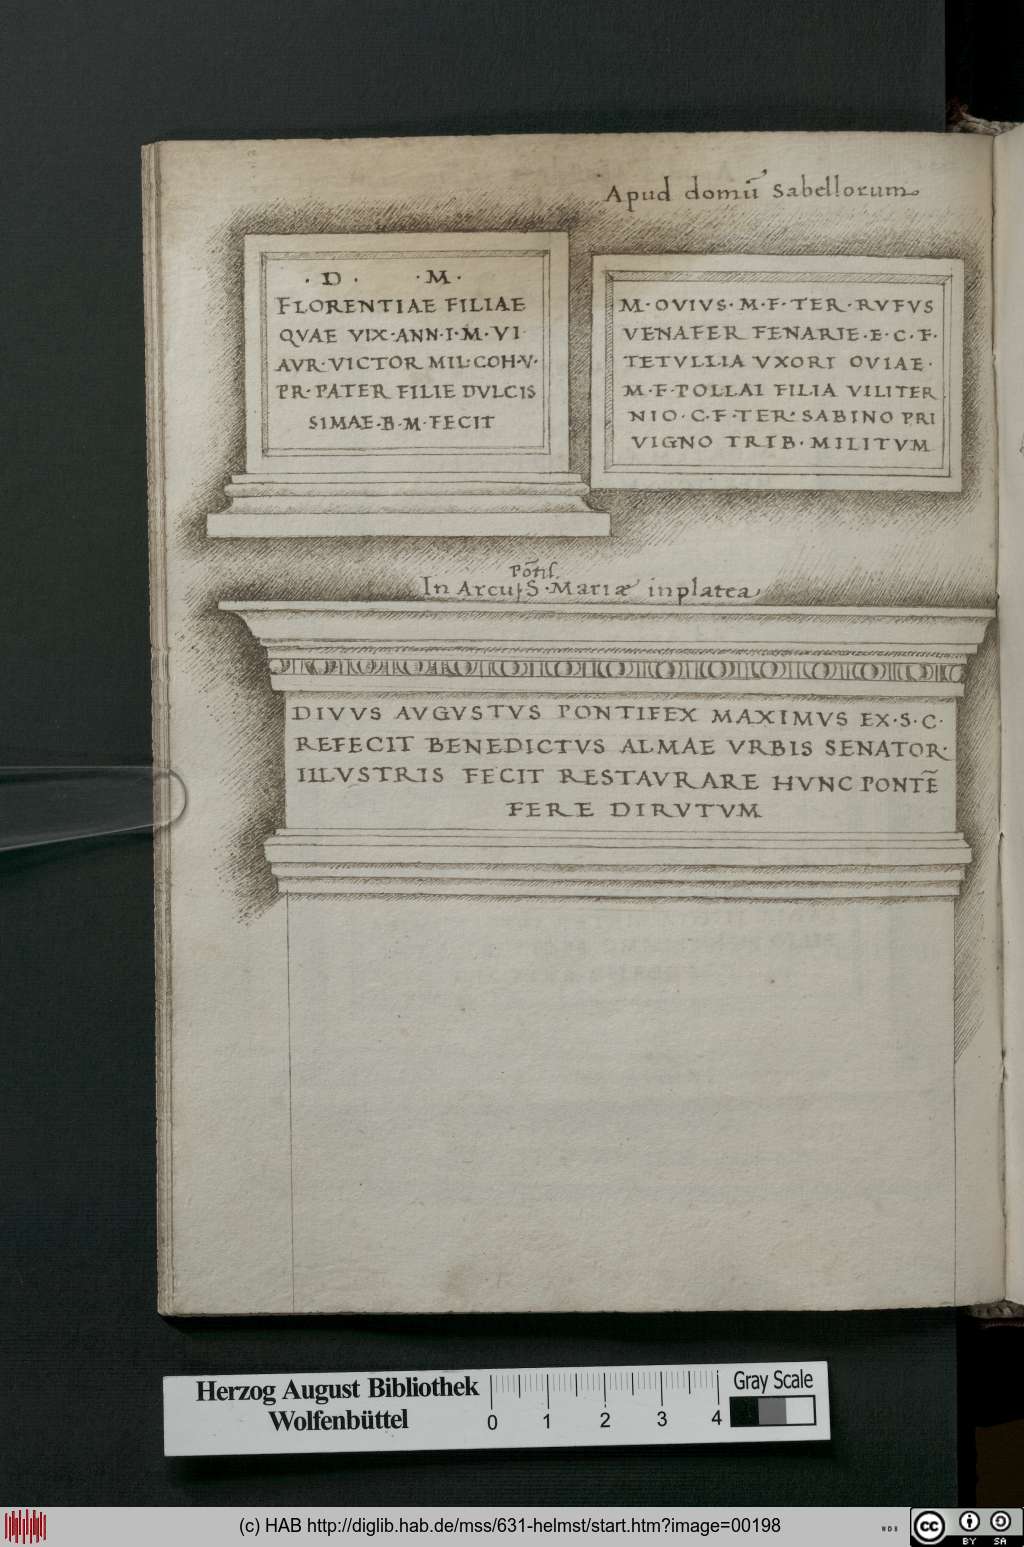 Apud domū Sabellorum
·D· ·M·
FLORENTIAE FILIAE
QVAE VIX·ANN·I·M·VI
AVR·VICTOR MIL·COH·V·
PR·PATER FILIE DVLCIS
SIMAE·B·M·FECIT
M·OVIVS·M·F·TER·RVFVS
VENAFER FENARIE·E·C·F·
TETVLLIA VXORI OVIAE·
M·F·POLLAI FILIA VILITER
NIO·C·F·TER·SABINO PRI
VIGNO TRIB·MILITVM
Pōtis
In Arcu S·Mariæ in platea
DIVVS AVGVSTVS PONTIFEX MAXIMVS EX·S·C·
REFECIT BENEDICTVS ALMAE VRBIS SENATOR·
ILLVSTRIS FECIT RESTAVRARE HVNC PONTĒ
FERE DIRVTVM
Herzog August Bibliothek
Wolfenbüttel
0 1 2 3 4
Gray Scale
(c) HAB http://diglib.hab.de/mss/631-helmst/start.htm?image=00198
WDB
cc BY SA